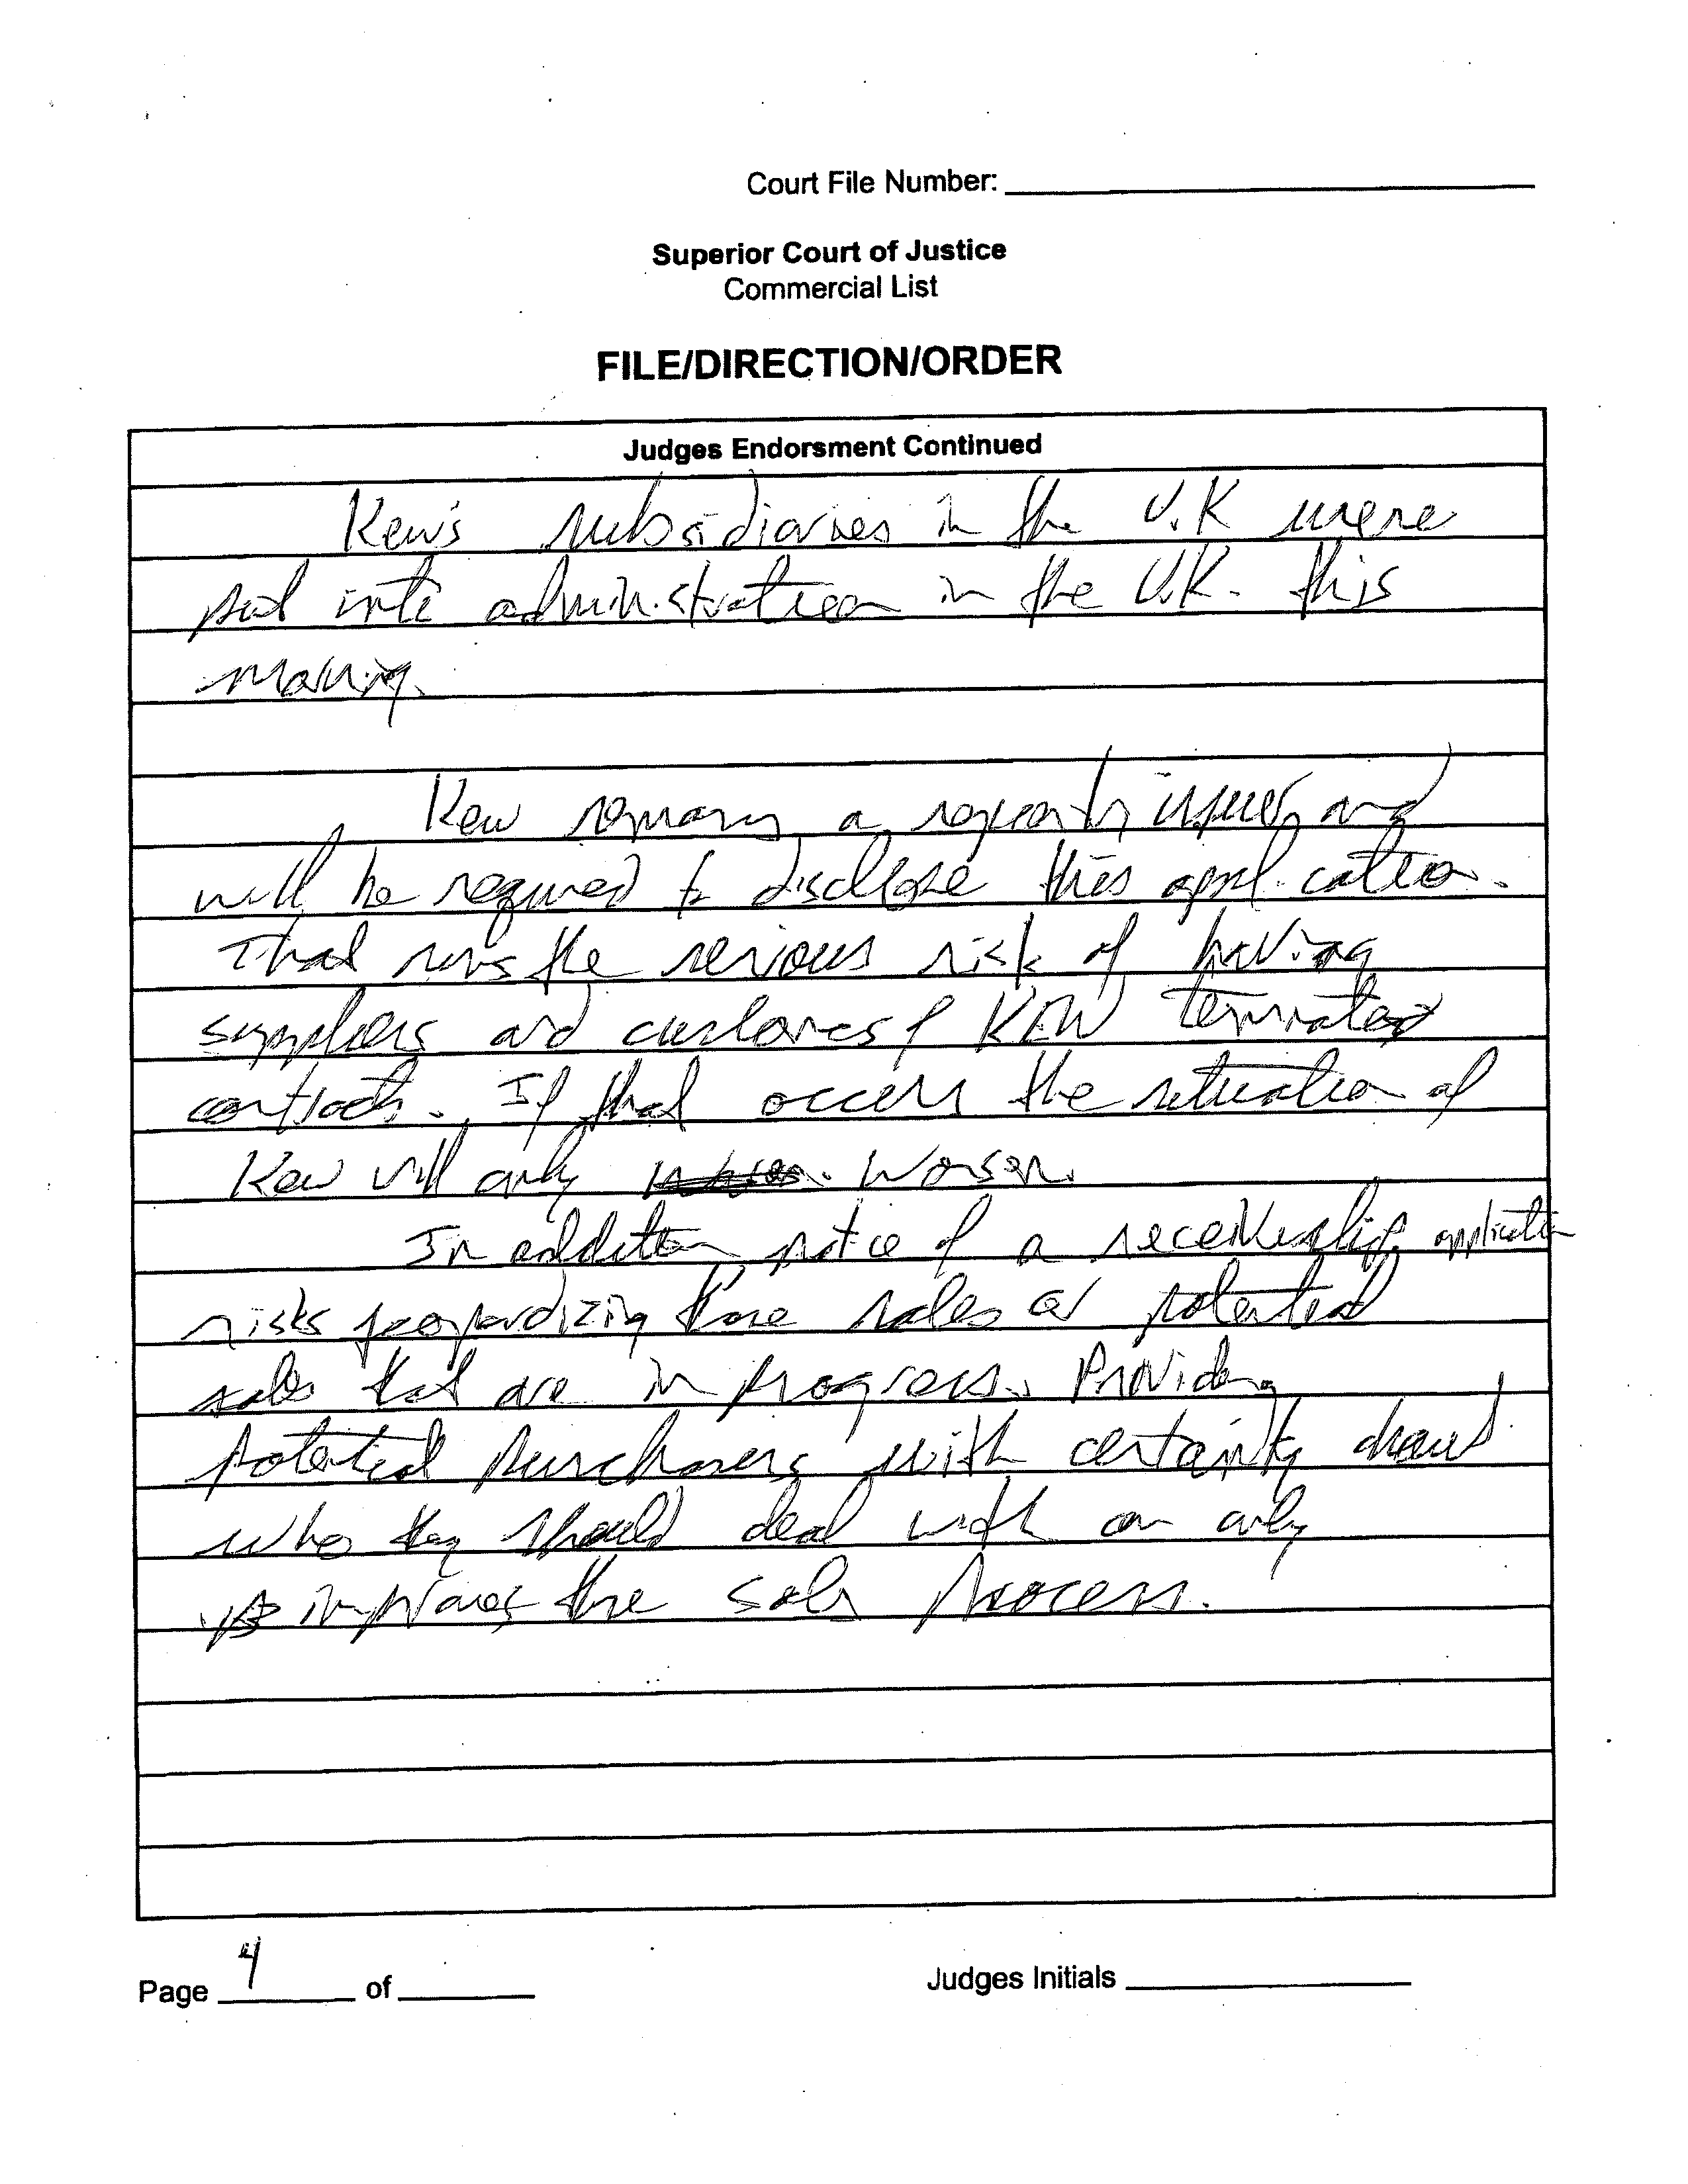 Court File Number:
Superior Court of Justice
Commercial List
FILE/DIRECTION/ORDER
Judges Endorsment Continued
Kew's subsidiaries in the U.K were
put into administration in the U.K. this
morning.
Kew remains a reporting issuer and
will be required to disclose this application.
That runs the serious risk of having
suppliers and customers of KEW terminated
contracts. If that occurs the situation of
Kew will only worsen.
In addition notice of a receivership application
risks jeopardizing those sales or potential
sales that are in progress. Providing
potential purchasers with certainty about
who they should deal with can only
improves the sales process.
Page 4 of
Judges Initials